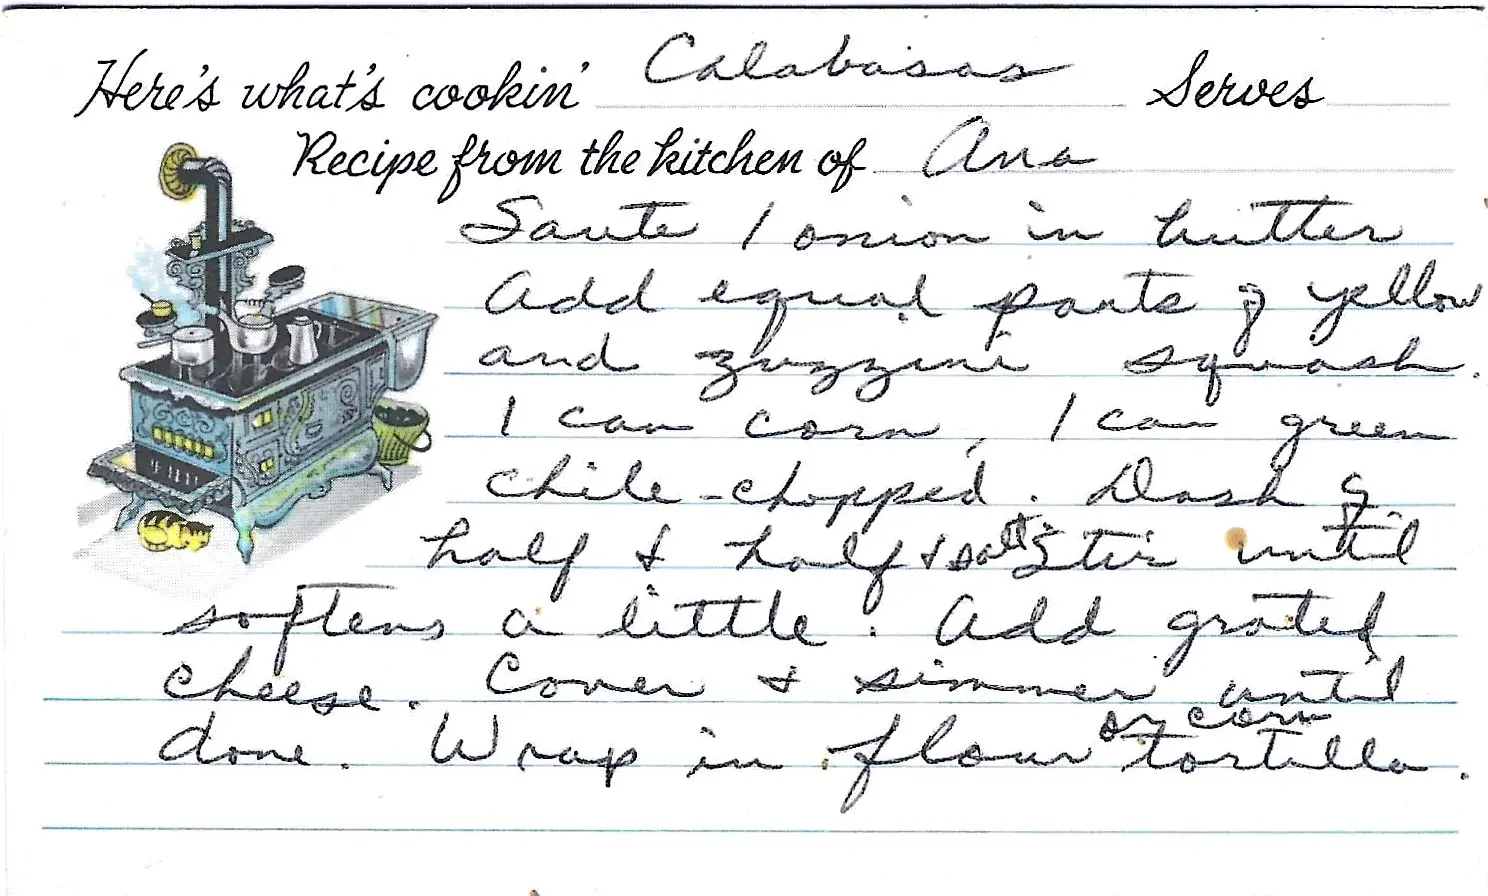 Here's what's cookin' Calabasas Serves
Recipe from the kitchen of Ana
Saute 1 onion in butter
Add equal parts of yellow
and zuzzini squash.
1 can corn, 1 can green
chile - chopped. Dash of
half & half & salt. Stir until
softens a little. Add grated
cheese. Cover & simmer until
done. Wrap in flour or corn tortilla.